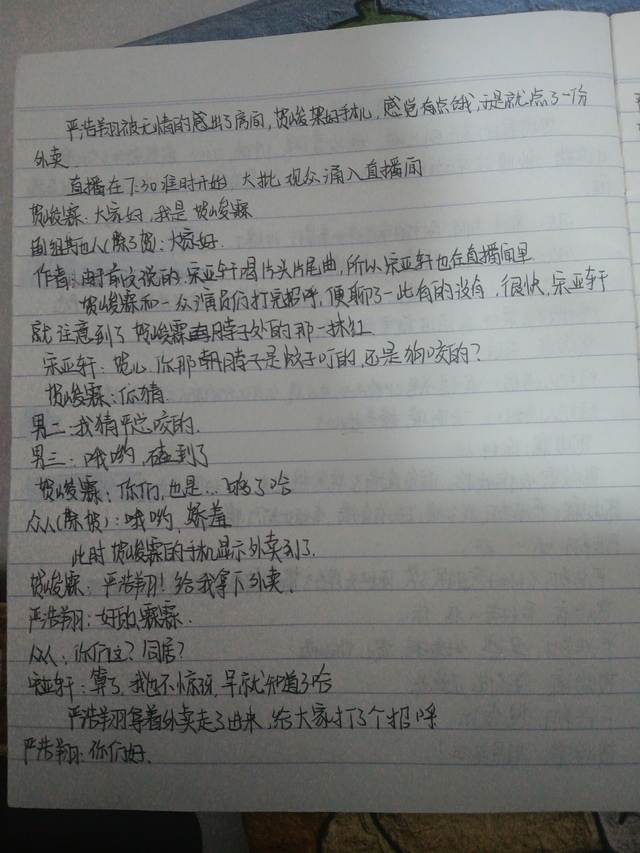 严浩翔被无情的感出了房间,贺峻架好手机,感觉有点饿,于是就点了一份
外卖
直播在7:30准时开始,大批观众涌入直播间
贺峻霖:大家好,我是贺峻霖
剧组其他人(除了贺):大家好.
作者:由于前文说的,宋亚轩唱片头片尾曲,所以宋亚轩也在直播间里
贺峻霖和一众演员们打完招呼,便聊了一此有的没有,很快,宋亚轩
就注意到了贺峻霖脖子处的那一抹红
宋亚轩:贺儿,你那脖子是蚊子叮的,还是狗咬的?
贺峻霖:你猜
男二:我猜严总咬的.
男三:哦哟,磕到了
贺峻霖:你们,也是...够了哈
众人(除贺):哦哟,娇羞
此时贺峻霖的手机显示外卖到了.
贺峻霖:严浩翔!给我拿下外卖.
严浩翔:好的霖霖.
众人:你们这?同居?
宋亚轩:算了,我也不惊讶,早就知道了哈
严浩翔拿着外卖走了进来,给大家打了个招呼
严浩翔:你们好.